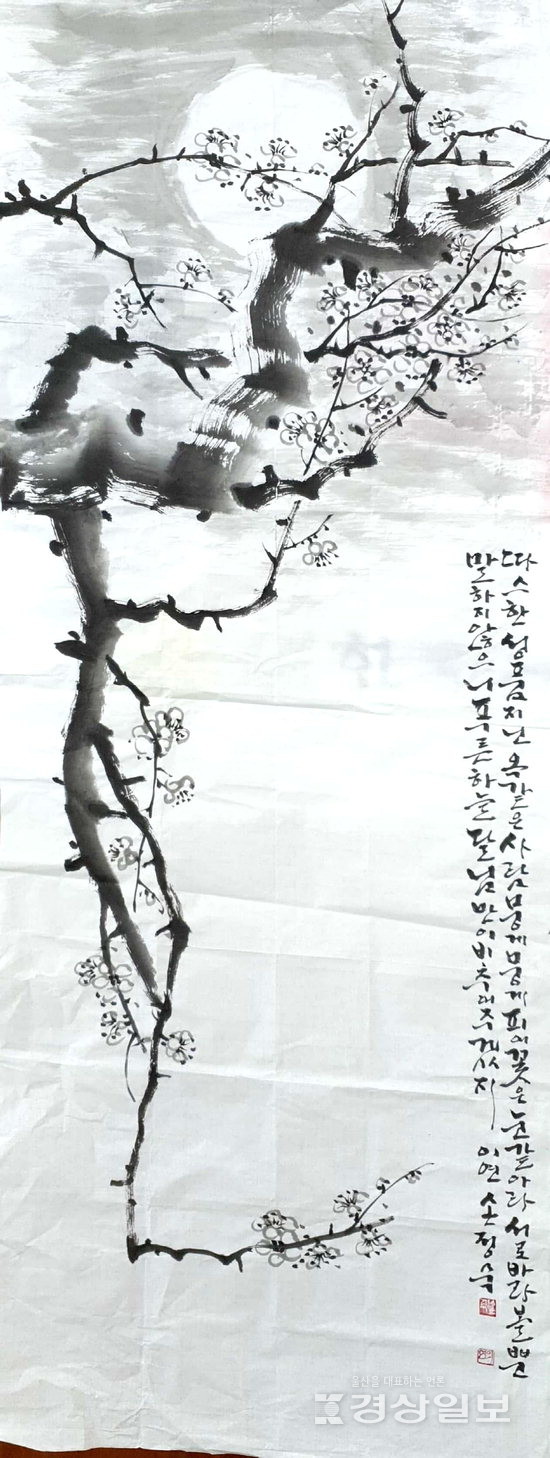 따스한 성품 지닌 옥같은 사람 뭉게뭉게 피어 꽃은 눈같아라 서로 바라볼 뿐
말하지 않으니 푸른 하늘 달님만이 비추어 주겠지
이연 손정숙
울산을 대표하는 언론
경상일보